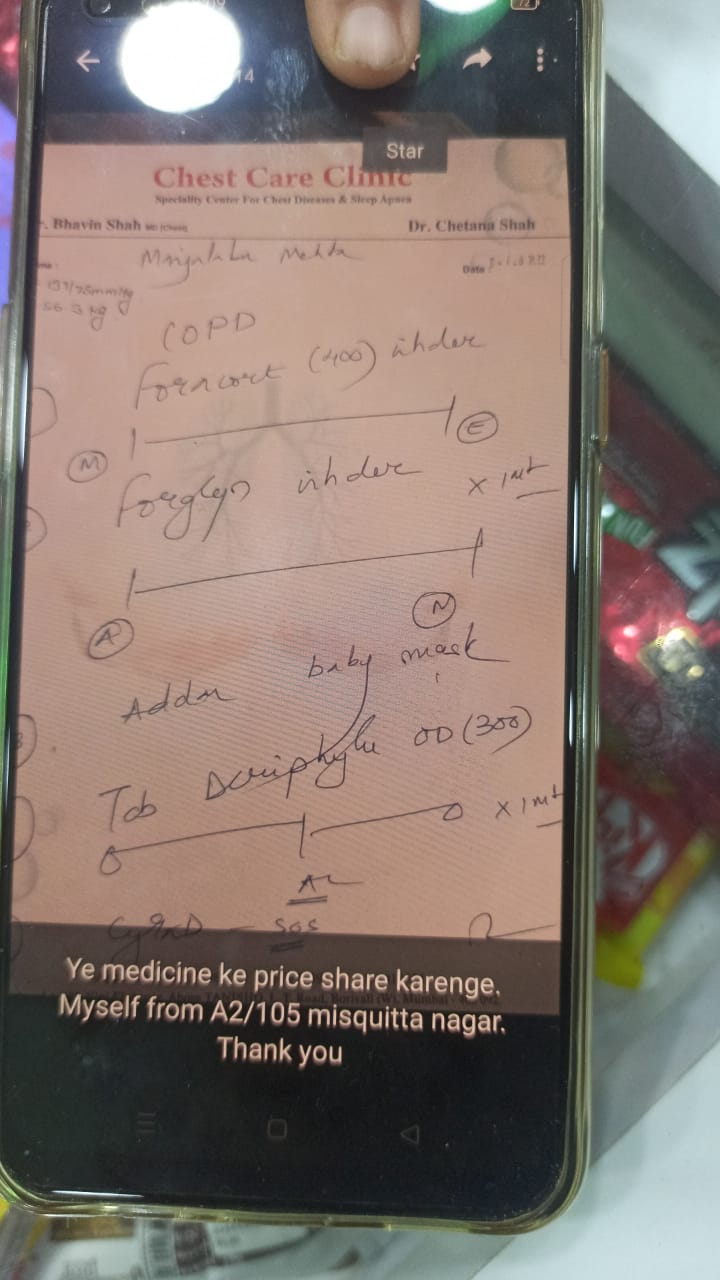 14
Star
Chest Care Clinic
Speciality Center For Chest Diseases & Sleep Apnea
. Bhavin Shah MD (Chest)
Dr. Chetana Shah
Mehta
Date
137/75mmHg
56.3 kg
COPD
Foracort (400) inhaler
M E
inhaler x 1mt
A N
baby mask
Tab Deriphylin OD (300)
x 1mt
AL
SOS
Ye medicine ke price share karenge.
Myself from A2/105 misquitta nagar.
Thank you